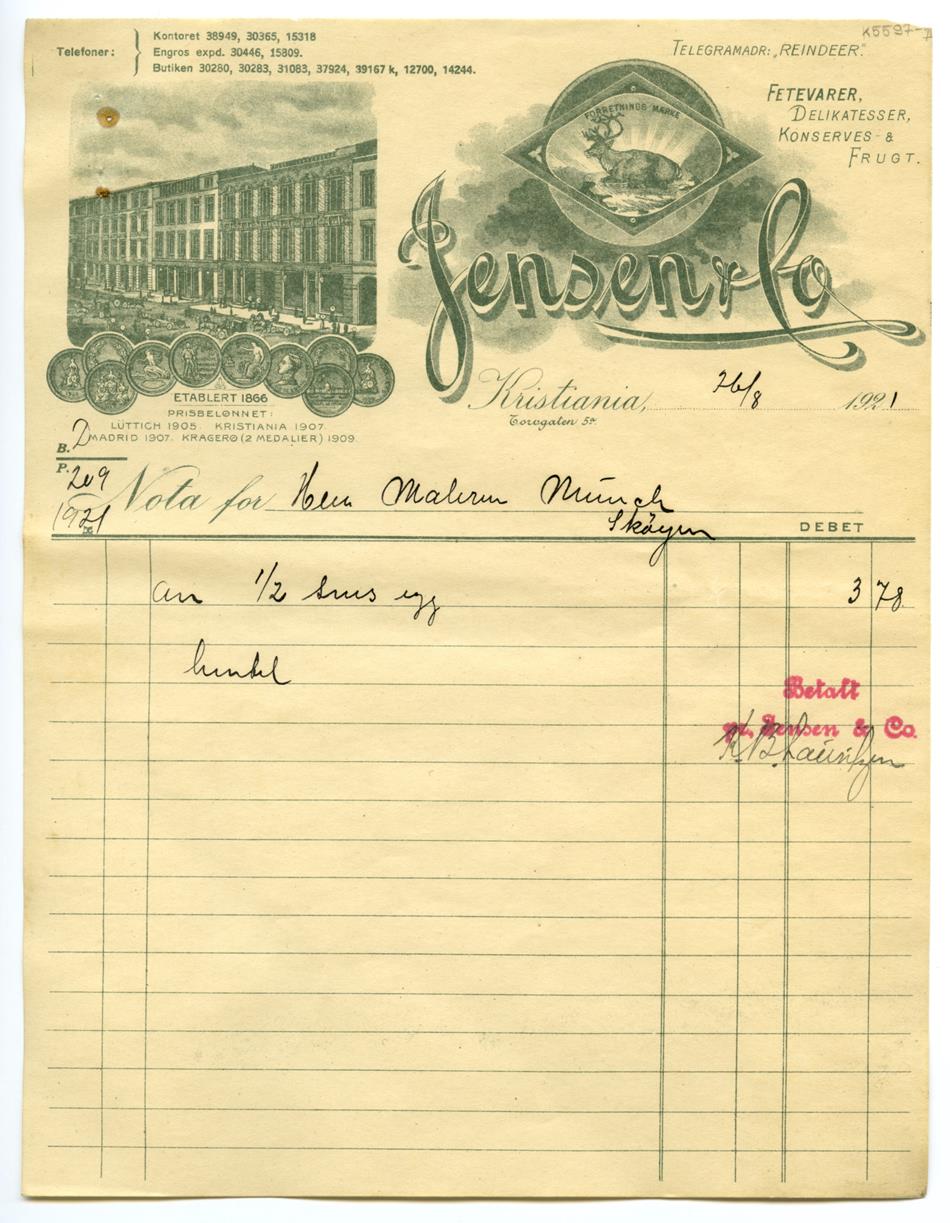 K5597-7
Telefoner:
Kontoret 38949, 30365, 15318
Engros expd. 30446, 15809.
Butiken 30280, 30283, 31083, 37924, 39167 k, 12700, 14244.
TELEGRAMADR: „REINDEER."
FETEVARER,
DELIKATESSER,
KONSERVES- &
FRUGT.
FORRETNINGS MÆRKE
Jensen & Co
ETABLERT 1866
PRISBELØNNET:
LÜTTICH 1905. KRISTIANIA 1907.
MADRID 1907. KRAGERØ (2 MEDALIER) 1909.
Kristiania, 26/8 1921
Torvgaten 5a.
B. 2
P. 209
1921
Nota for Herr Maleren Münch
Skøyen
DEBET
an 1/2 snes egg 3 78
hentet
Betalt
pr. Jensen & Co.